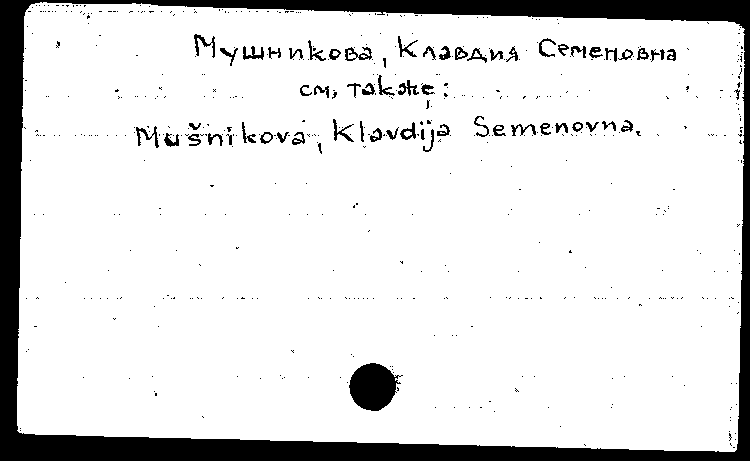 Мушникова, Клавдия Семеновна
см. также:
Mušnikova, Klavdija Semenovna.